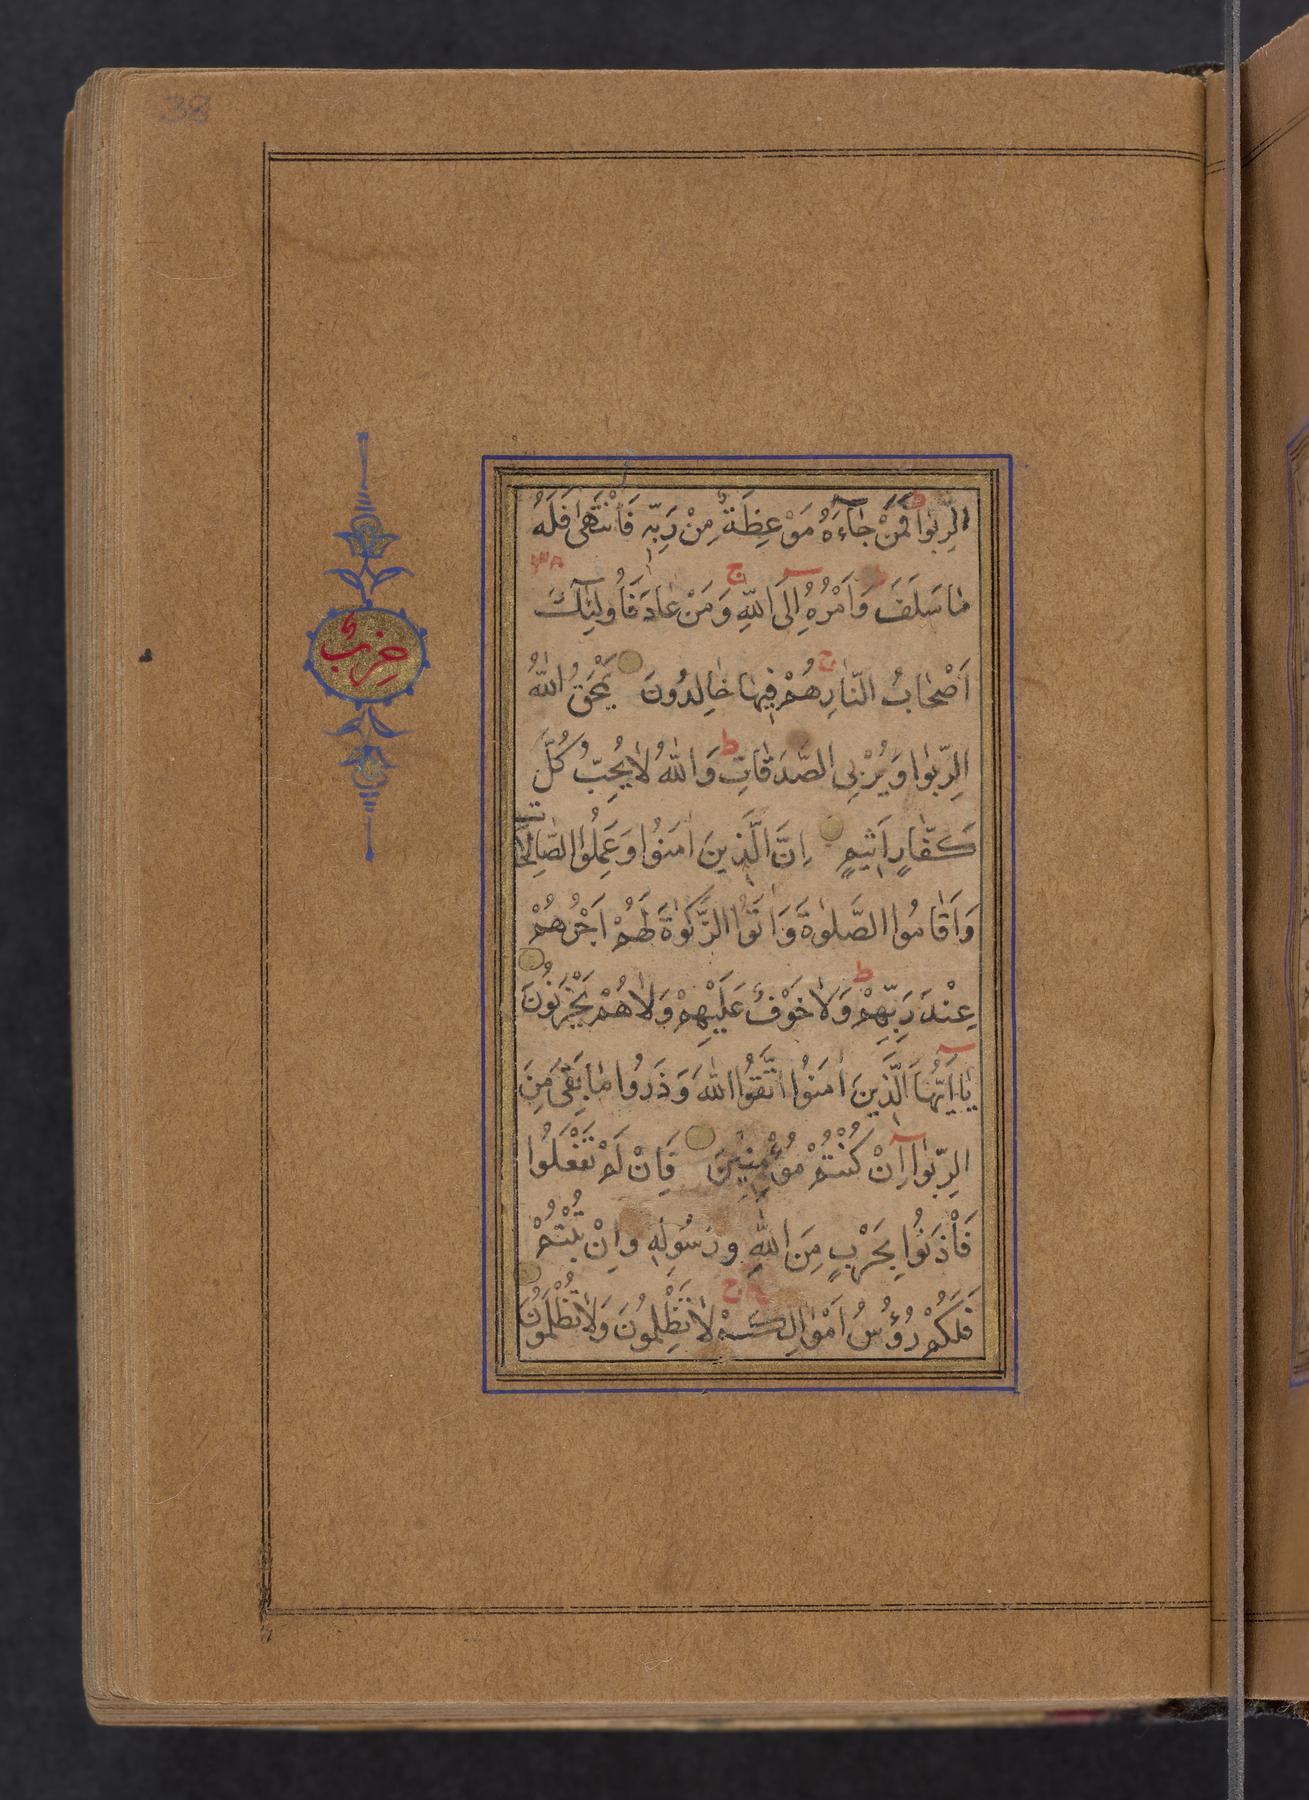 38
الرِّبٰوا فَمَنْ جَآءَهُ مَوْعِظَةٌ مِنْ رَبِّهٖ فَانْتَهٰى فَلَهُ
مٰا سَلَفَ وَاَمْرُهُ اِلَى اللّٰهِ وَمَنْ عٰادَ فَاُولٰئِكَ
اَصْحٰابُ النّٰارِ هُمْ فِيهٰا خٰالِدُونَ يَمْحَقُ اللّٰهُ
الرِّبٰوا وَيُرْبِى الصَّدَقٰاتِ وَاللّٰهُ لٰا يُحِبُّ كُلَّ
كَفّٰارٍ اَثِيمٍ اِنَّ الَّذِينَ اٰمَنُوا وَعَمِلُوا الصّٰالِحٰاتِ
وَاَقٰامُوا الصَّلٰوةَ وَاٰتَوُا الزَّكٰوةَ لَهُمْ اَجْرُهُمْ
عِنْدَ رَبِّهِمْ وَلٰا خَوْفٌ عَلَيْهِمْ وَلٰا هُمْ يَحْزَنُونَ
يٰا اَيُّهَا الَّذِينَ اٰمَنُوا اتَّقُوا اللّٰهَ وَذَرُوا مٰا بَقِىَ مِنَ
الرِّبٰوا اِنْ كُنْتُمْ مُؤْمِنِينَ فَاِنْ لَمْ تَفْعَلُوا
فَأْذَنُوا بِحَرْبٍ مِنَ اللّٰهِ وَرَسُولِهٖ وَاِنْ تُبْتُمْ
فَلَكُمْ رُؤُسُ اَمْوٰالِكُمْ لٰا تَظْلِمُونَ وَلٰا تُظْلَمُونَ
حِزْبٌ